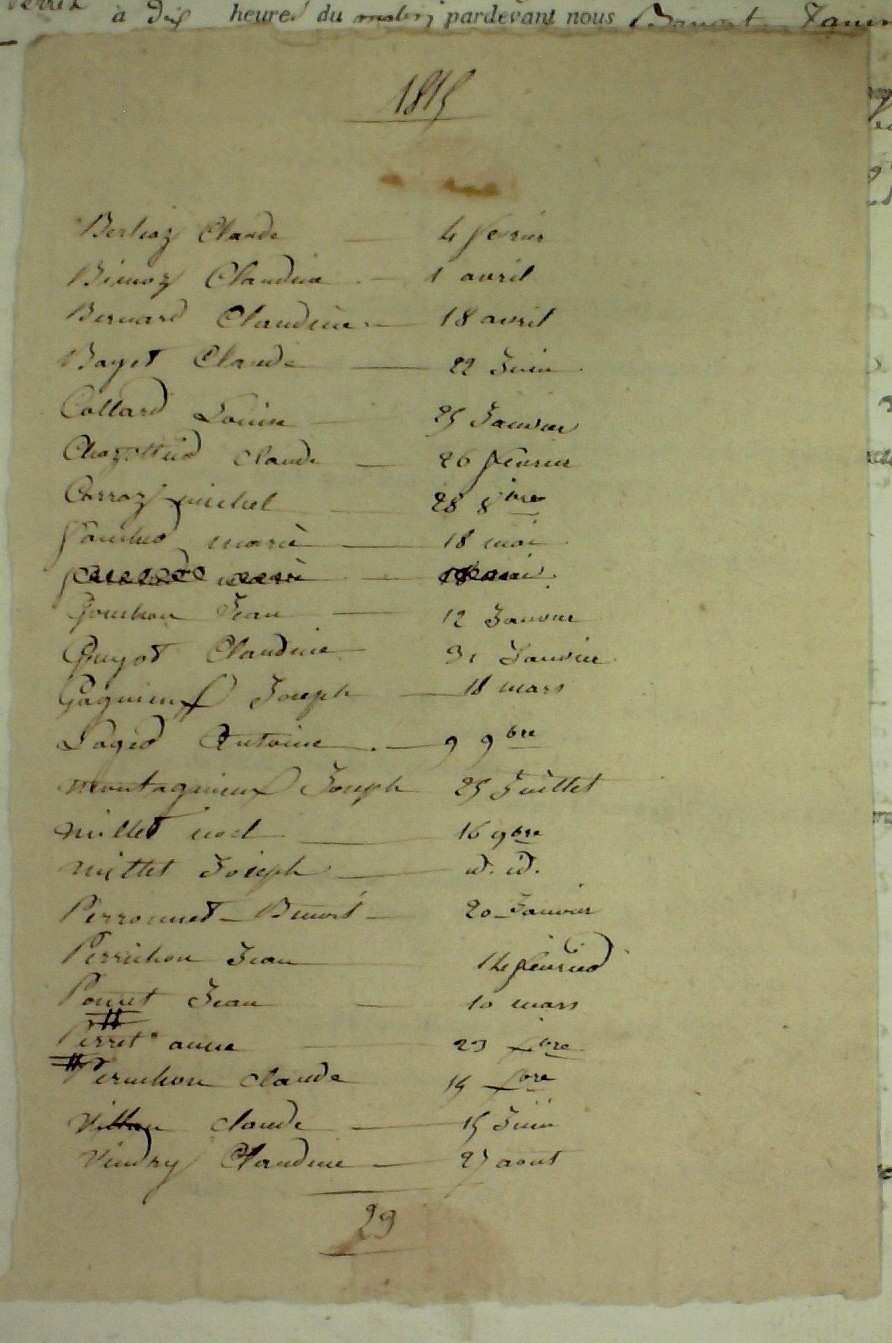 à dix heures du matin pardevant nous
1815
Berlioz Claude — 4 fevrier
Bienoz Claudine — 1 avril
Bernard Claudine — 18 avril
Bayet Claude — 22 Juin
Collard Louise — 25 Janvier
Claude — 26 fevrier
Corroz michel — 28 8bre
marie — 18 mai
Gonichon Jean — 12 Janvier
Guyot Claudine 31 Janvier
Gagnieux Joseph — 18 mars
Lager Antoine — 9 9bre
Montagnieux Joseph 25 Juillet
Millet noel — 16 9bre
Millet Joseph — id. id.
Perronnet Benoit — 20 Janvier
Perrichon Jean — 14 fevrier
Jean — 10 mars
Perret anne — 23 bre
Perrichon Claude 15 bre
claude — 15 Juin
Vindry Claudine — 27 aout
23